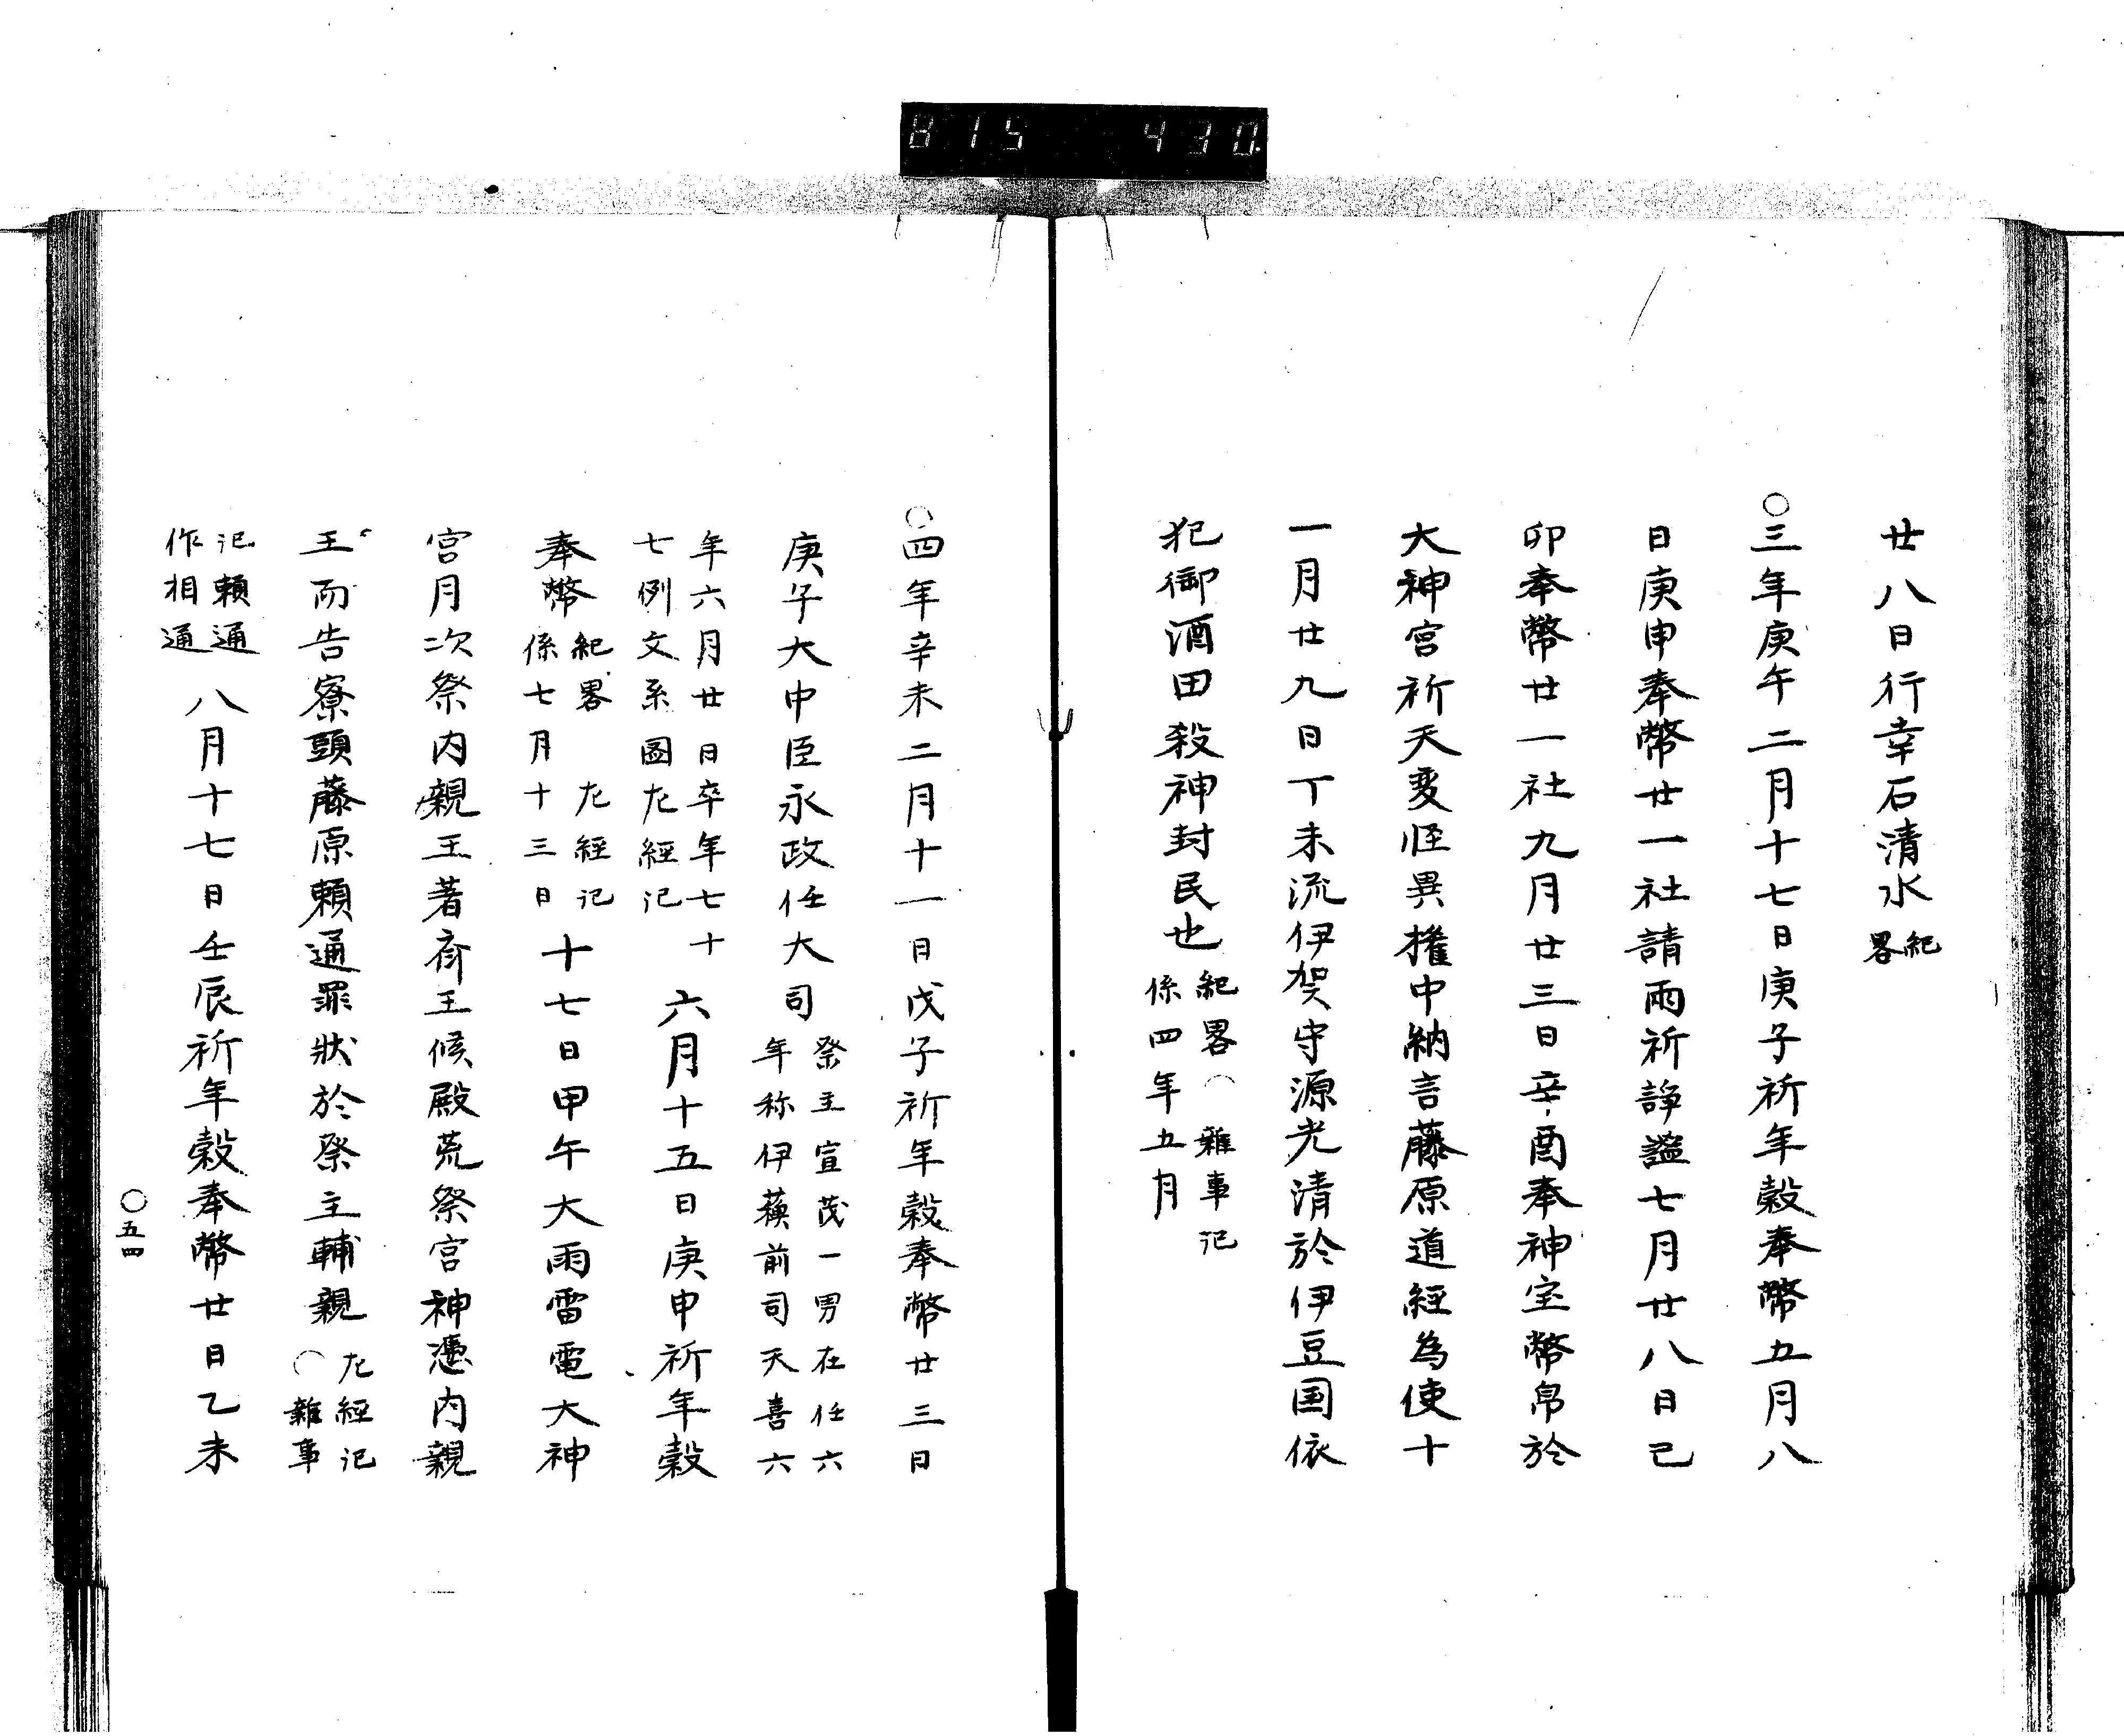 815 430
廿八日行幸石清水紀畧
○三年庚午二月十七日庚子祈年穀奉幣五月八
日庚申奉幣廿一社請雨祈諍謐七月廿八日己
卯奉幣廿一社九月廿三日辛酉奉神宝幣帛於
大神宮祈天変恠異権中納言藤原道経為使十
一月廿九日丁未流伊賀守源光清於伊豆国依
犯御酒田殺神封民也紀畧○雜事記係四年五月
○四年辛未二月十一日戊子祈年穀奉幣廿三日
庚子大中臣永政任大司祭主宣茂一男在任六年称伊蘓前司天喜六
年六月廿日卒年七十七例文系圖左經记六月十五日庚申祈年穀
奉幣紀畧左經记係七月十三日十七日甲午大雨雷電大神
宮月次祭内親王著斎王候殿荒祭宮神憑内親
王而告寮頭藤原頼通罪狀於祭主輔親左經记○雜事
记頼通作相通八月十七日壬辰祈年穀奉幣廿日乙未
○五四